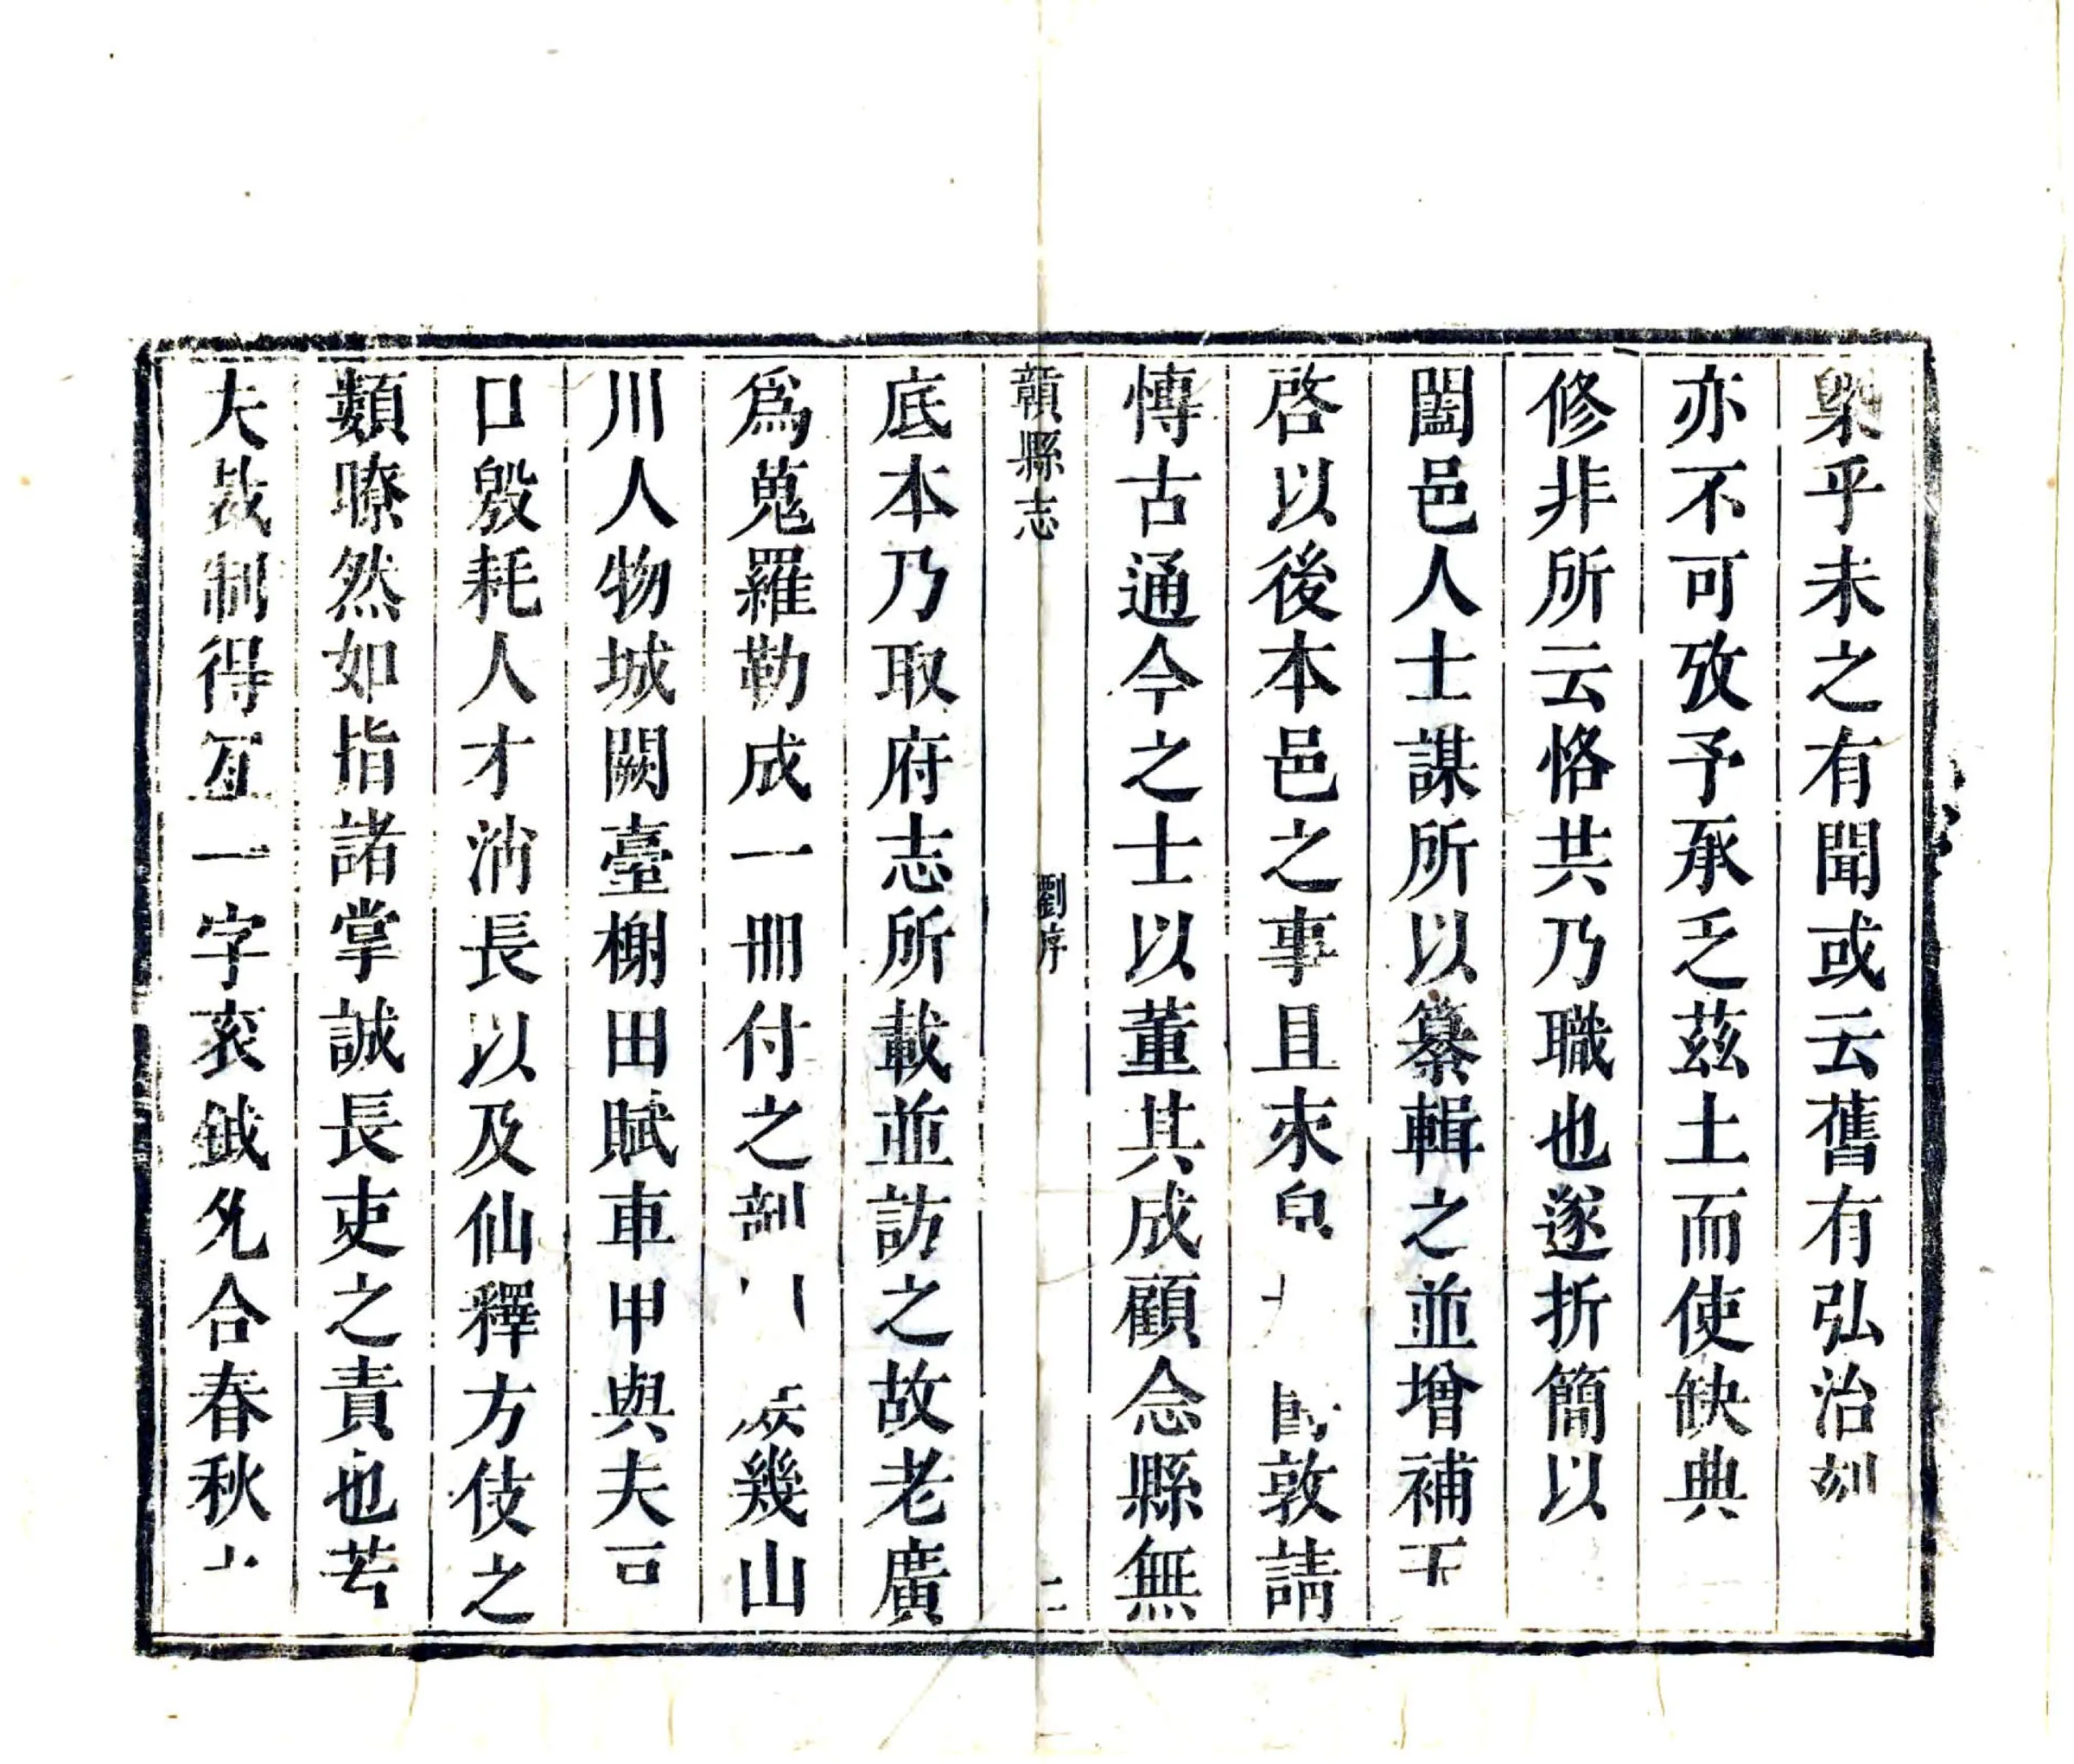 乎未之有聞或云舊有弘治刻
亦不可攷予承乏茲土而使缺典
修非所云恪共乃職也遂折簡以
闔邑人士謀所以纂輯之並增補天
啓以後本邑之事且來敦請
博古通今之士以董其成顧念縣無
贛縣志
劉序
二
底本乃取府志所載並訪之故老廣
爲蒐羅勒成一冊付之幾山
川人物城闕臺榭田賦車甲與夫戸
口殷耗人才消長以及仙釋方伎之
類瞭然如指諸掌誠長吏之責也若
夫裁制得宜一字衮鉞允合春秋